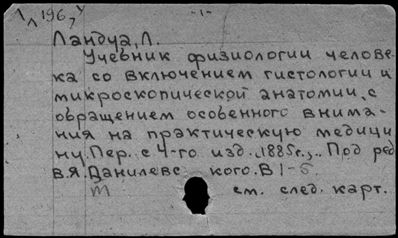 -1-
Ландуа, Л.
Учебник физиологии челове-
ка со включением гистологии и
микроскопической анатомии, с
обращением особенного внима-
ния на практическую медици
ну. Пер. с 4-го изд., 1885г., . Под ред
В.Я. Данилевс кого. В 1-6.
см. след. карт.